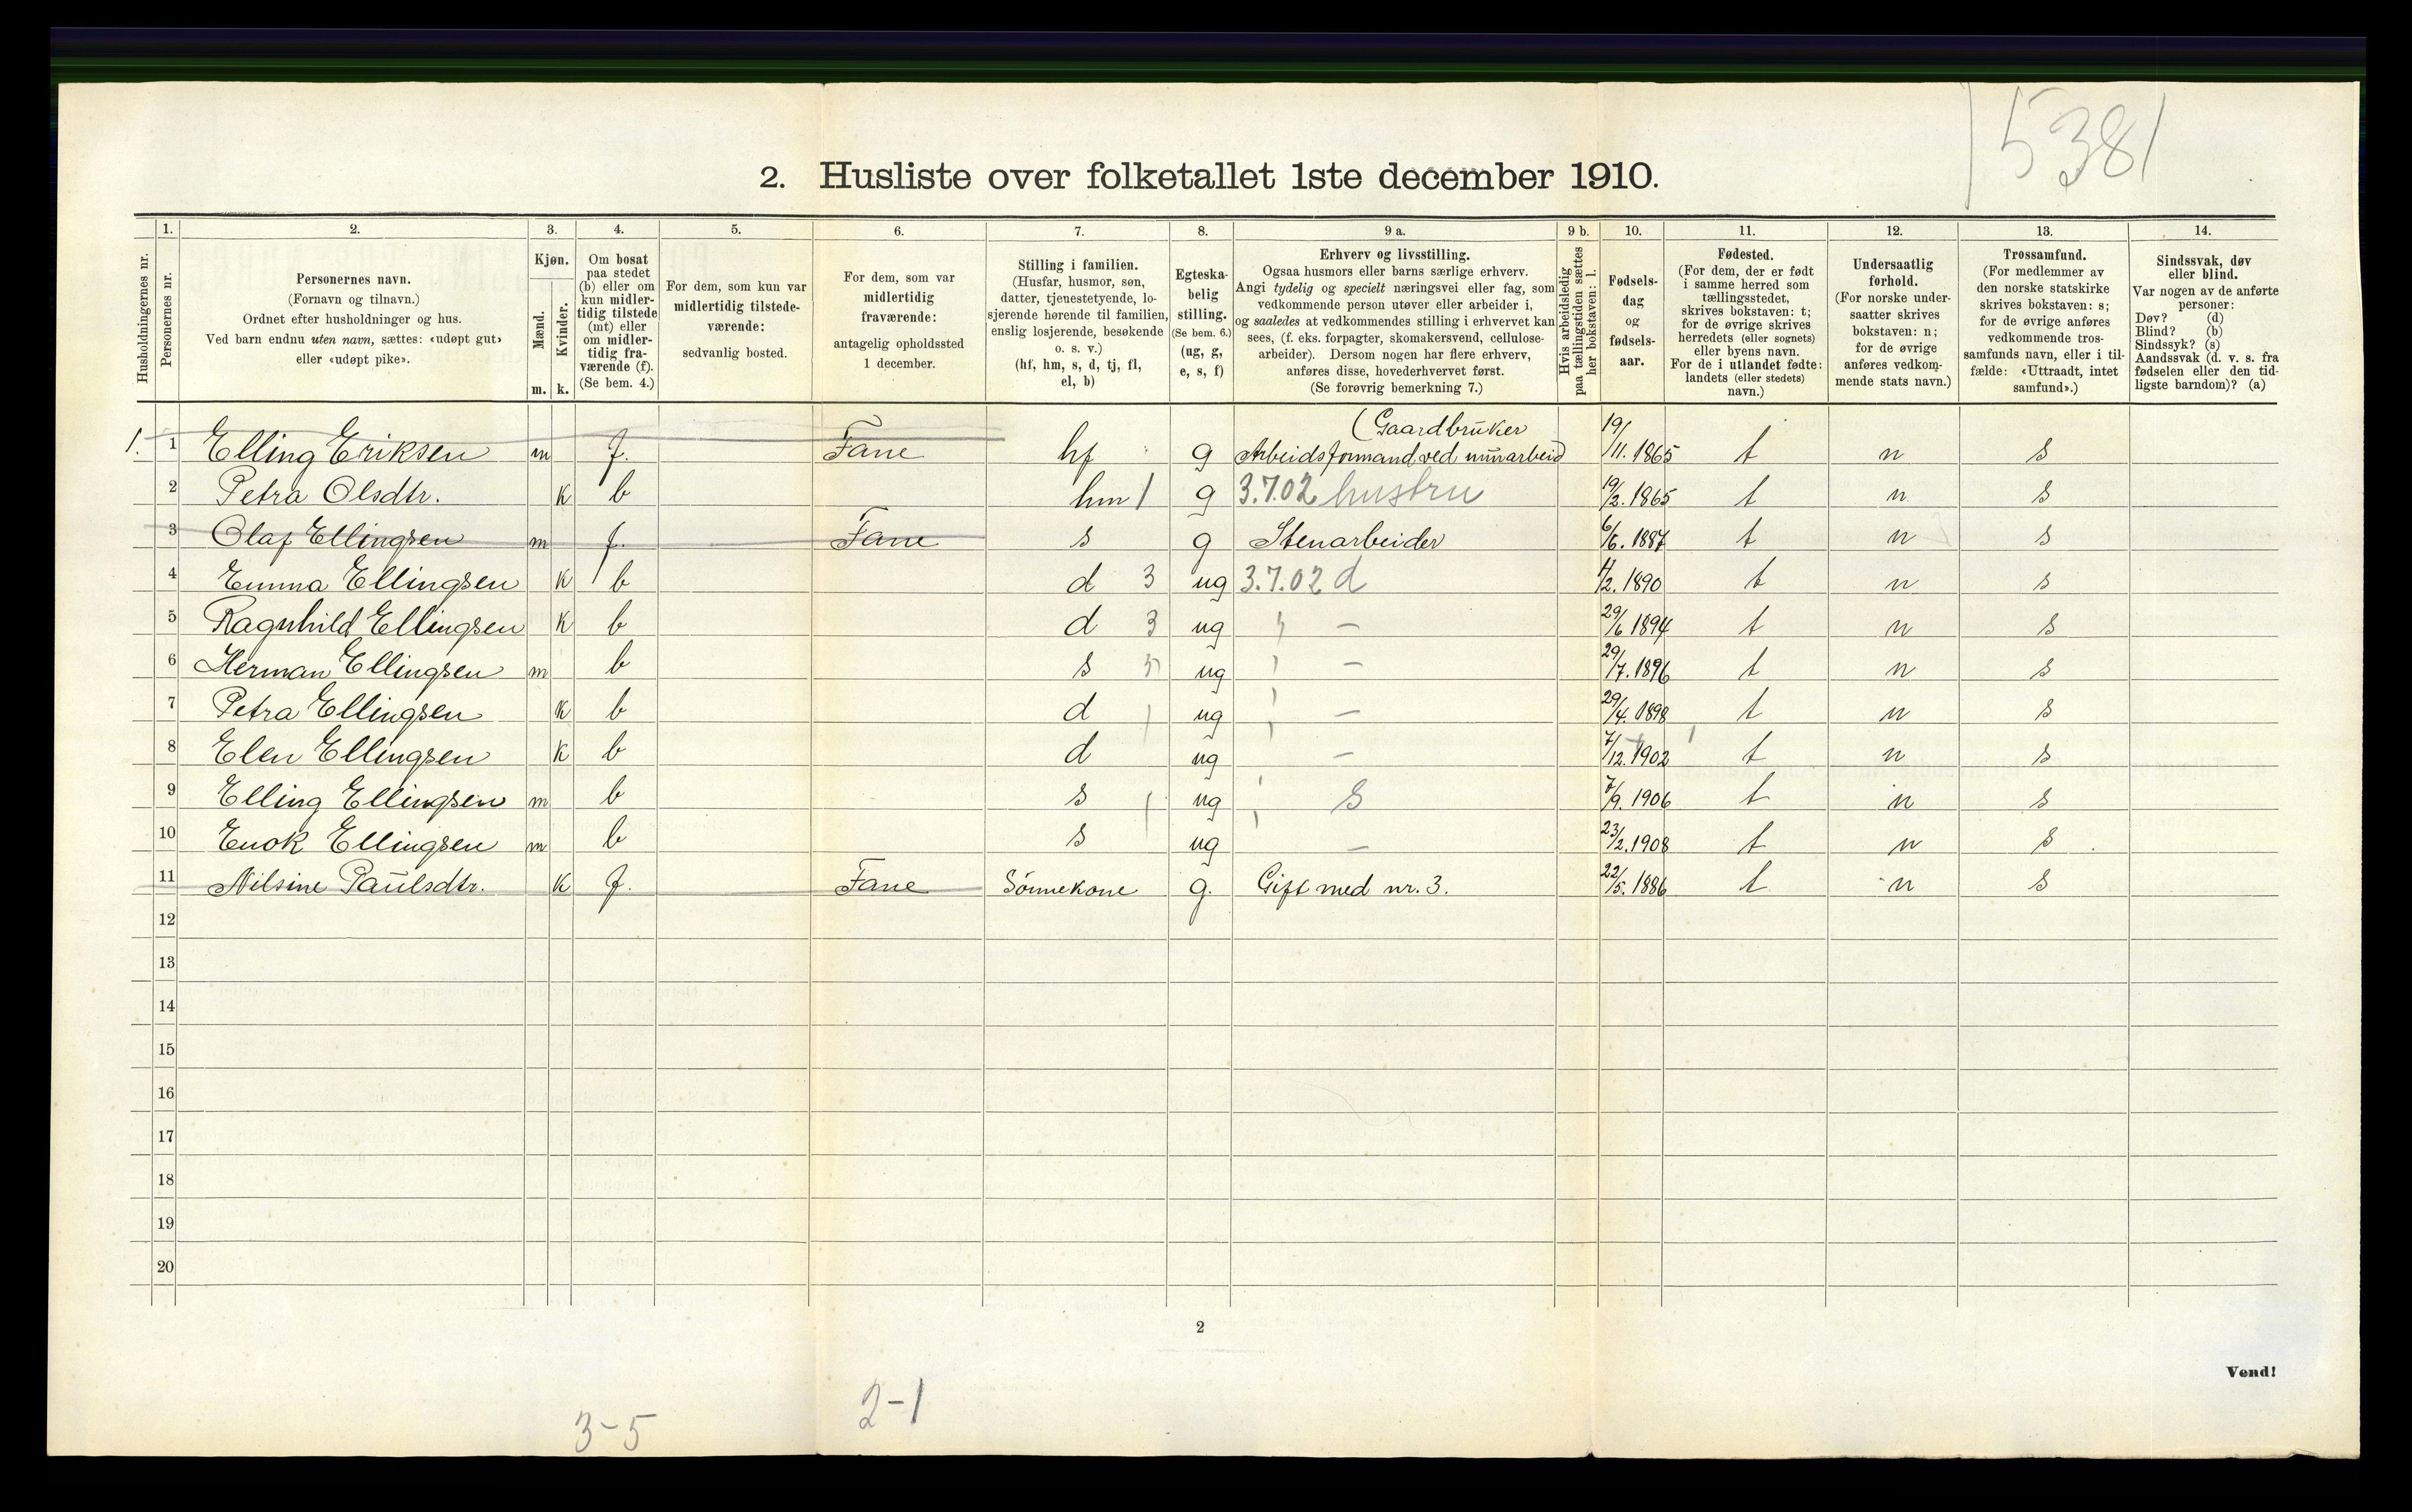 5381
2. Husliste over folketallet 1ste december 1910.
Husholdningernes nr.
1. Personernes nr.
2. Personernes navn. (Fornavn og tilnavn.) Ordnet efter husholdninger og hus. Ved barn endnu uten navn, sættes: «udøpt gut» eller «udøpt pike».
3. Kjøn. Mænd. m. Kvinder. k.
4. Om bosat paa stedet (b) eller om kun midlertidig tilstede (mt) eller om midlertidig fraværende (f). (Se bem. 4.)
5. For dem, som kun var midlertidig tilstedeværende: sedvanlig bosted.
6. For dem, som var midlertidig fraværende: antagelig opholdssted 1 december.
7. Stilling i familien. (Husfar, husmor, søn, datter, tjenestetyende, losjerende hørende til familien, enslig losjerende, besøkende o. s. v.) (hf, hm, s, d, tj, fl, el, b)
8. Egteskabelig stilling. (Se bem. 6.) (ug, g, e, s, f)
9 a. Erhverv og livsstilling. Ogsaa husmors eller barns særlige erhverv. Angi tydelig og specielt næringsvei eller fag, som vedkommende person utøver eller arbeider i, og saaledes at vedkommendes stilling i erhvervet kan sees, (f. eks. forpagter, skomakersvend, cellulosearbeider). Dersom nogen har flere erhverv, anføres disse, hovederhvervet først. (Se forøvrig bemerkning 7.)
9 b. Hvis arbeidsledig paa tællingstiden sættes her bokstaven: l.
10. Fødselsdag og fødselsaar.
11. Fødested. (For dem, der er født i samme herred som tællingsstedet, skrives bokstaven: t; for de øvrige skrives herredets (eller sognets) eller byens navn. For de i utlandet fødte: landets (eller stedets) navn.)
12. Undersaatlig forhold. (For norske undersaatter skrives bokstaven: n; for de øvrige anføres vedkommende stats navn.)
13. Trossamfund. (For medlemmer av den norske statskirke skrives bokstaven: s; for de øvrige anføres vedkommende trossamfunds navn, eller i tilfælde: «Uttraadt, intet samfund».)
14. Sindssvak, døv eller blind. Var nogen av de anførte personer: Døv? (d) Blind? (b) Sindssyk? (s) Aandssvak (d. v. s. fra fødselen eller den tidligste barndom)? (a)
(Gaardbruker
1. 1 Elling Eriksen m f. Fane hf g Arbeidsformand ved minarbeid 19/11. 1865 t n s
2 Petra Olsdtr. K b hm 1 g 3.7.02 hustru 19/2. 1865 t n s
3 Olaf Ellingsen m f. Fane s g Stenarbeider 6/6. 1887 t n s
4 Emma Ellingsen K b d 3 ug 3.7.02 d 11/2. 1890 t n s
5 Ragnhild Ellingsen K b d 3 ug — 29/6 1894 t n s
6 Herman Ellingsen m b s ug — 29/7. 1896 t n s
7 Petra Ellingsen K b d ug — 29/4. 1898 t n s
8 Elen Ellingsen K b d ug — 7/12. 1902 t n s
9 Elling Ellingsen m b s ug s 7/9. 1906 t n s
10 Enok Ellingsen m b s ug — 23/2. 1908 t n s
11 Nilsine Paulsdtr. K f. Fane Sønnekone g. Gift med nr. 3. 22/5. 1886 t n s
12
13
14
15
16
17
18
19
20
2
Vend!
2-1
3-5